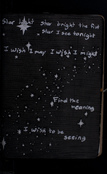 Star bright Star bright the first
Star I see tonight
I wish I may I wish I might
Find the
meaning
I wish to be
seeing